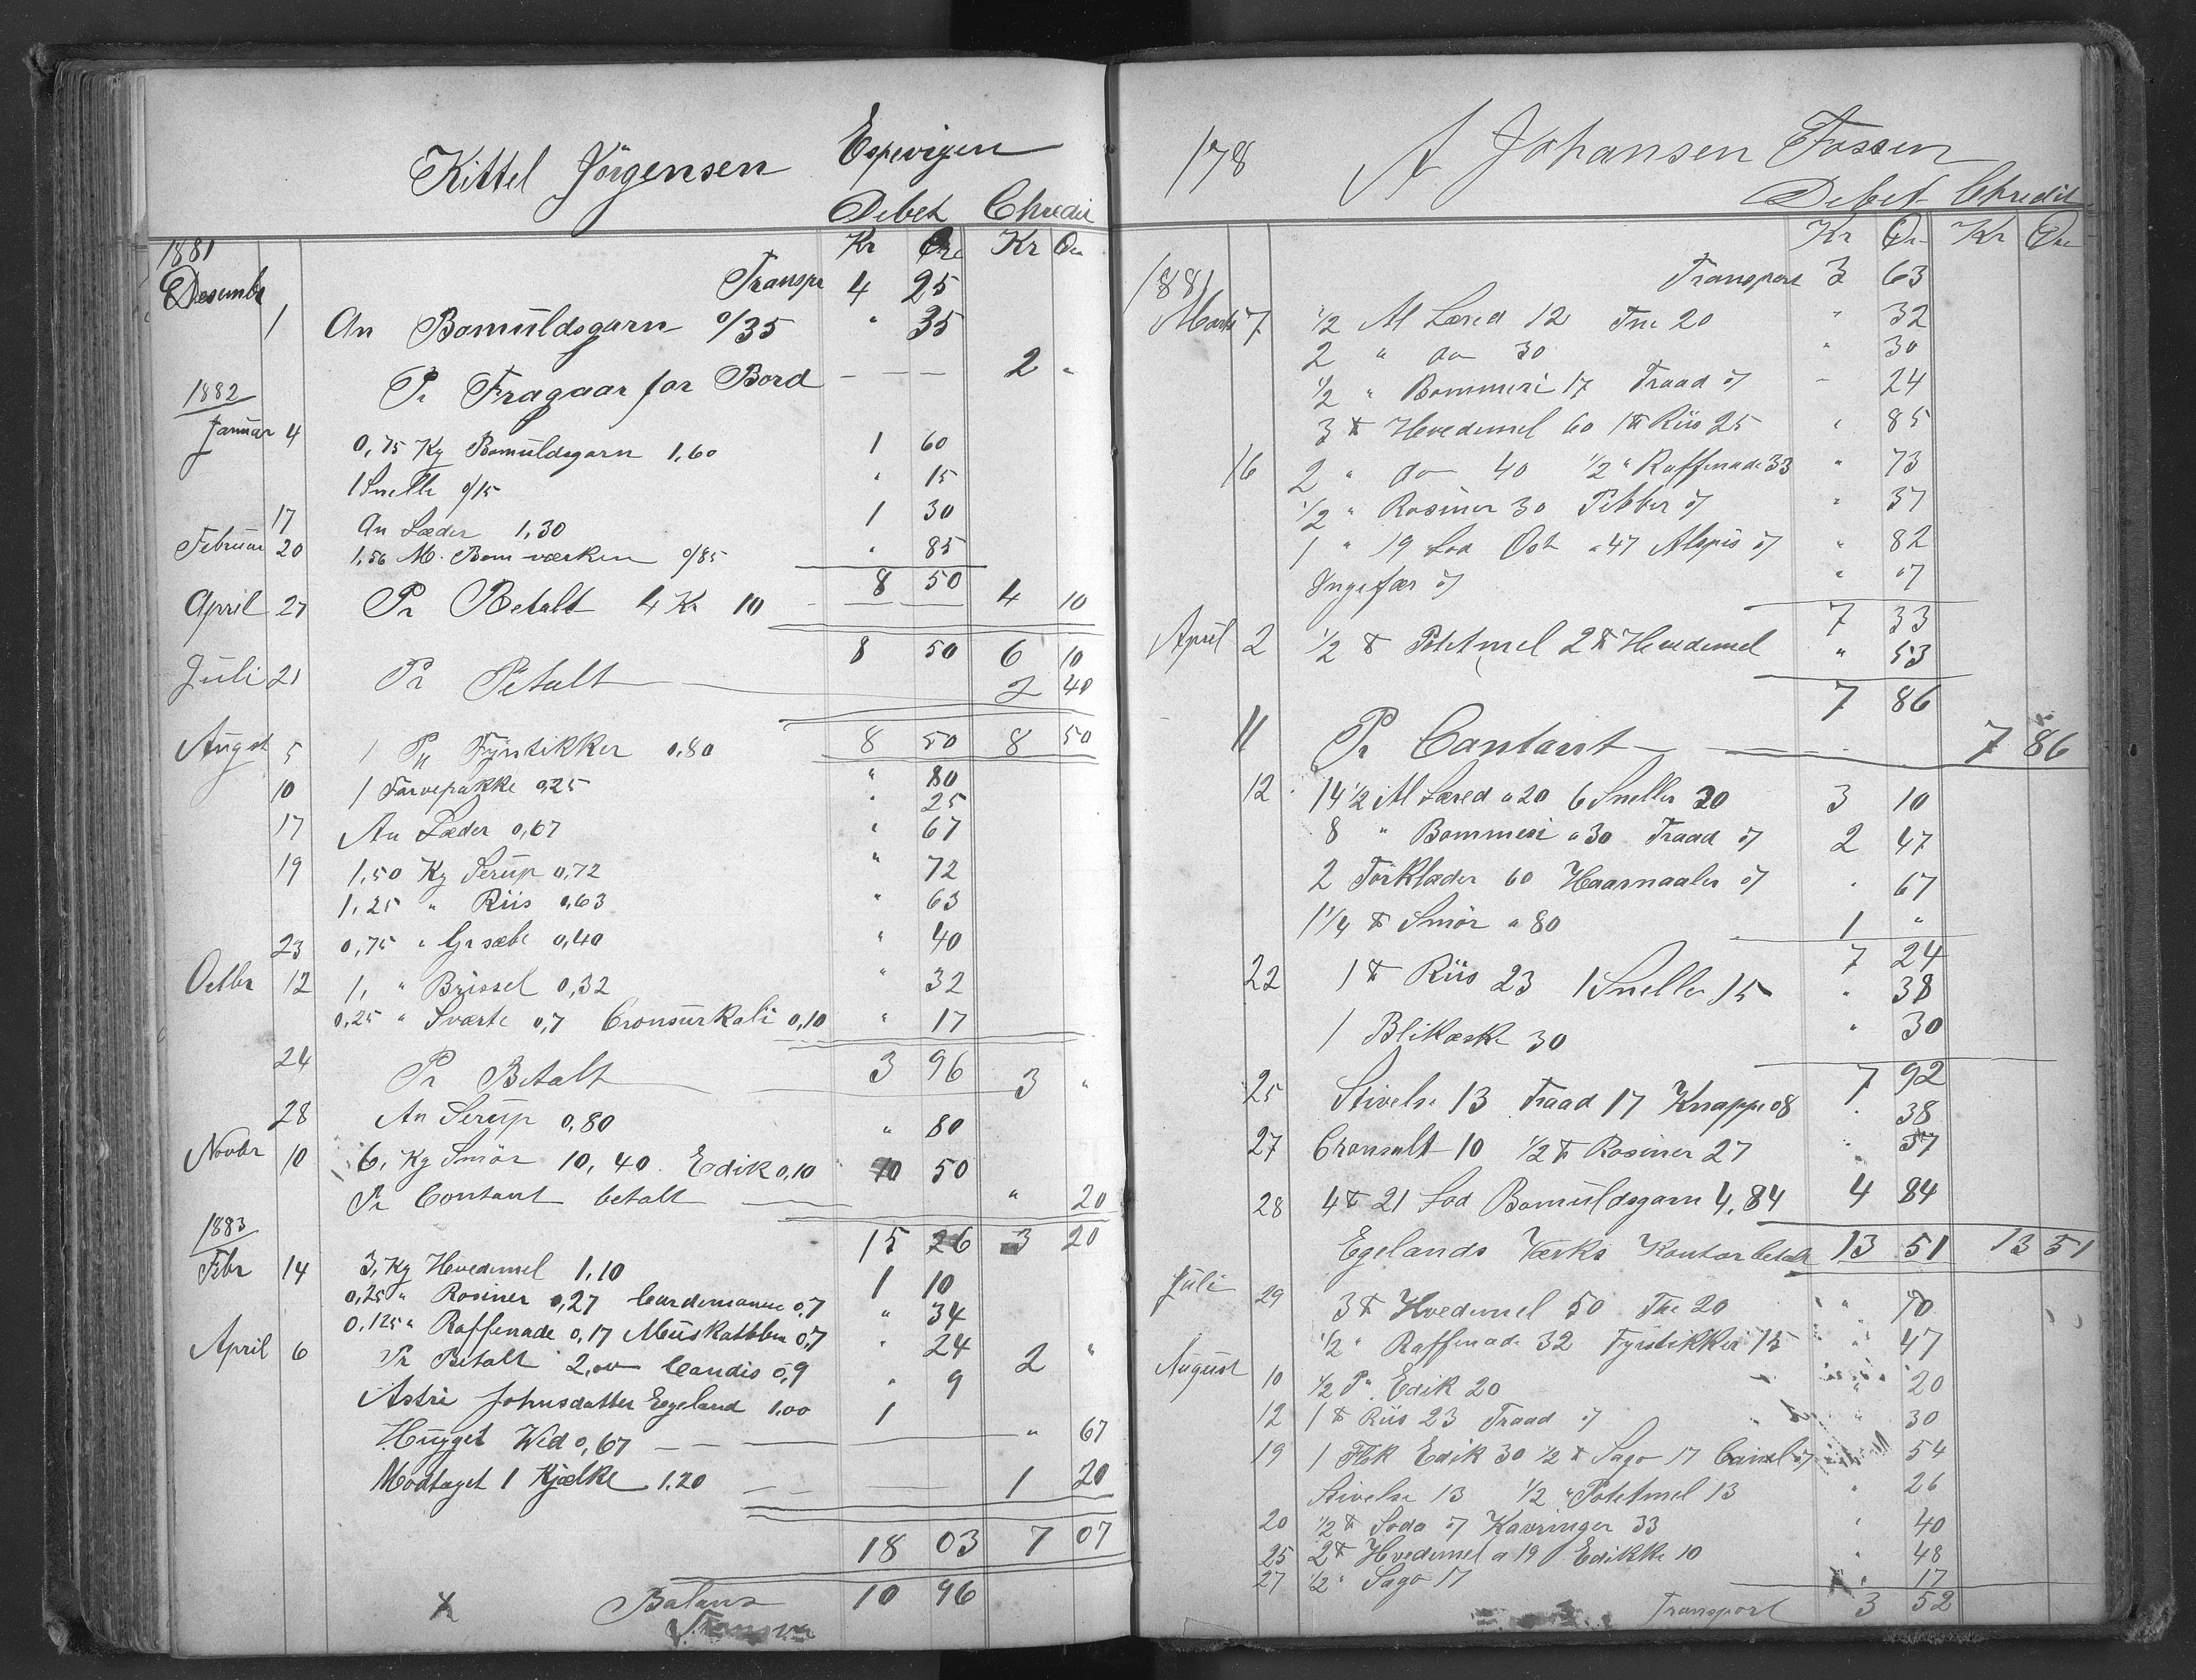 Kittel Jörgensen Espevigen
Debet Chredit
Kr Øre Kr Øre
1881
Desembr Transpr 4 25
1 An Bomüldsgarn 0/35 " 35
Pr Fragaar for Bord — — — 2 "
1882
Januar 4 0,75 Kg Bomüldsgarn 1,60 1 60
1 Snelle 0/15 " 15
17 An Læder 1,30 1 30
Februar 20 1,50 M. Bom værken 0/85 " 85
8 50
April 27 Pr Betalt 4 Kr 10 4 10
8 50 6 10
Juli 21 Pr Betalt 2 40
8 50 8 50
Augst 5 1 Pk Fyrstikker 0,80 " 80
10 1 Farvepakke 0,25 " 25
17 An Læder 0,67 " 67
19 1,50 Kg Serup 0,72 " 72
1,25 " Riis 0,63 " 63
23 0,75 " Gr sæbe 0,40 " 40
Octbr 12 1, " Brissel 0,32 " 32
0,25 " Sværte 0,7 Cronsurkali 0,10 " 17
3 96
24 Pr Betalt 3 "
28 An Serup 0,80 " 80
Novbr 10 6, Kg Smör 10,40 Edik 0,10 10 50
Pr Contant betalt " 20
15 26 3 20
1883
Febr 14 3, Kg Hvedemel 1,10 1 10
0,25 " Rosiner 0,27 Cardemomme 0,7 " 34
0,125 " Raffenade 0,17 Muskatblm 0,7 " 24
April 6 Pr Betalt 2,00 Candis 0,9 " 9 2 "
Astri Johnsdatter Egeland 1,00 1
Hugget Wed 0,67 — — " 67
Modtaget 1 Kjælke 1.20 1 20
18 03 7 07
x Balans 10 96
178 A Johansen Fossen
Debet Chredit
Kr Øre Kr Øre
1881 Transport 3 63
Marts 7 1/2 Al Læred 12 Tne 20 " 32
2 " do 30 " 30
1/2 " Bommesi 17 Traad 07 " 24
3 ℔ Hvedemel 60 1 ℔ Riis 25 " 85
16 2 " do 40 1/2 " Raffenade 33 " 73
1/2 " Rosiner 30 Pebber 07 " 37
1 " 19 Lod Ost a 47 Alspis 07 " 82
Yngefær 07 " 07
7 33
April 2 1/2 ℔ Potetmel 2 ℔ Hvedemel " 53
7 86
11 Pr Contant 7 86
12 14 1/2 Al Læred a 20 6 Sneller 20 3 10
8 " Bommesi a 30 Traad 07 2 47
2 Törklæder 60 Haarnaaler 07 " 67
1 1/4 ℔ Smör a 80 1 "
7 24
22 1 ℔ Riis 23 1 Snelle 15 " 38
1 Blikæske 30 " 30
7 92
25 Stivelse 13 Traad 17 Knappe 08 " 38
27 Cronsalt 10 1/2 ℔ Rosiner 27 " 37
28 4 ℔ 21 Lod Bomüldsgarn 4,84 4 84
Egelands Værks Kontor betalt 13 51 13 51
Juli 29 3 ℔ Hvedemel 50 The 20 " 70
1/2 " Raffenade 32 Fyrstikker 15 " 47
August 10 1/2 P. Edik 20 " 20
12 1 ℔ Riis 23 Traad 07 " 30
19 1 Flsk Edik 30 1/2 ℔ Sago 17 Canel 07 54
Stivelse 13 1/2 " Potetmel 13 " 26
20 1/2 ℔ Soda 07 Kavringer 33 " 40
25 2 ℔ Hvedemel a 19 Edikke 10 " 48
27 1/2 " Sago 17 " 17
Transport 3 52